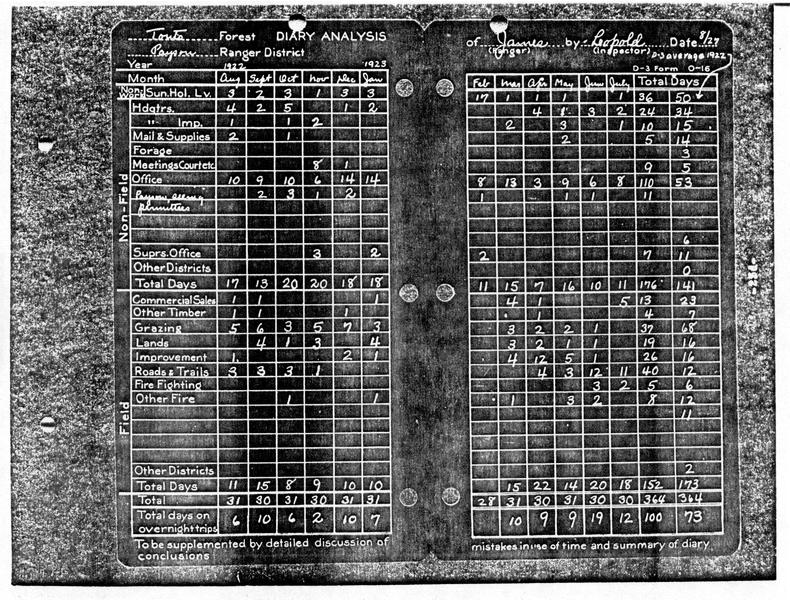 Tonto Forest DIARY ANALYSIS
Payson Ranger District
Year 1922 1923
Month Aug Sept Oct Nov Dec Jan
Non-Work Sun. Hol. Lv. 3 2 3 1 3 3
Hdqtrs. 4 2 5 1 2
" Imp. 1 1 2
Mail & Supplies 2 1
Forage
Meetings Court etc. 8 1
Office 10 9 10 6 14 14
Payson, seeing 2 3 1 2
permittees
Suprs. Office 3 2
Other Districts
Total Days 17 13 20 20 18 18
Non-Field
Commercial Sales 1 1 1
Other Timber 1 1 1
Grazing 5 6 3 5 7 3
Lands 4 1 3 4
Improvement 1 2 1
Roads & Trails 3 3 3 1
Fire Fighting
Other Fire 1 1
Other Districts
Total Days 11 15 8 9 10 10
Field
Total 31 30 31 30 31 31
Total days on 6 10 6 2 10 7
overnight trips
To be supplemented by detailed discussion of
conclusions
of James by Leopold Date 8/27
(Ranger) (Inspector) D-3 average 1922
D-3 Form O-16
Feb Mar Apr May June July Total Days
17 1 1 1 1 36 50
4 1 3 2 24 34
2 3 1 10 15
2 5 14
3
9 5
8 13 3 9 6 8 110 53
1 1 1 11
6
2 7 11
0
11 15 7 16 10 11 176 141
4 1 5 13 23
1 4 7
3 2 2 1 37 68
3 2 1 1 19 16
4 12 5 1 26 16
4 3 12 11 40 12
3 2 5 6
1 3 2 8 12
11
2
15 22 14 20 18 152 173
28 31 30 31 30 30 364 364
10 9 9 19 12 100 73
mistakes in use of time and summary of diary